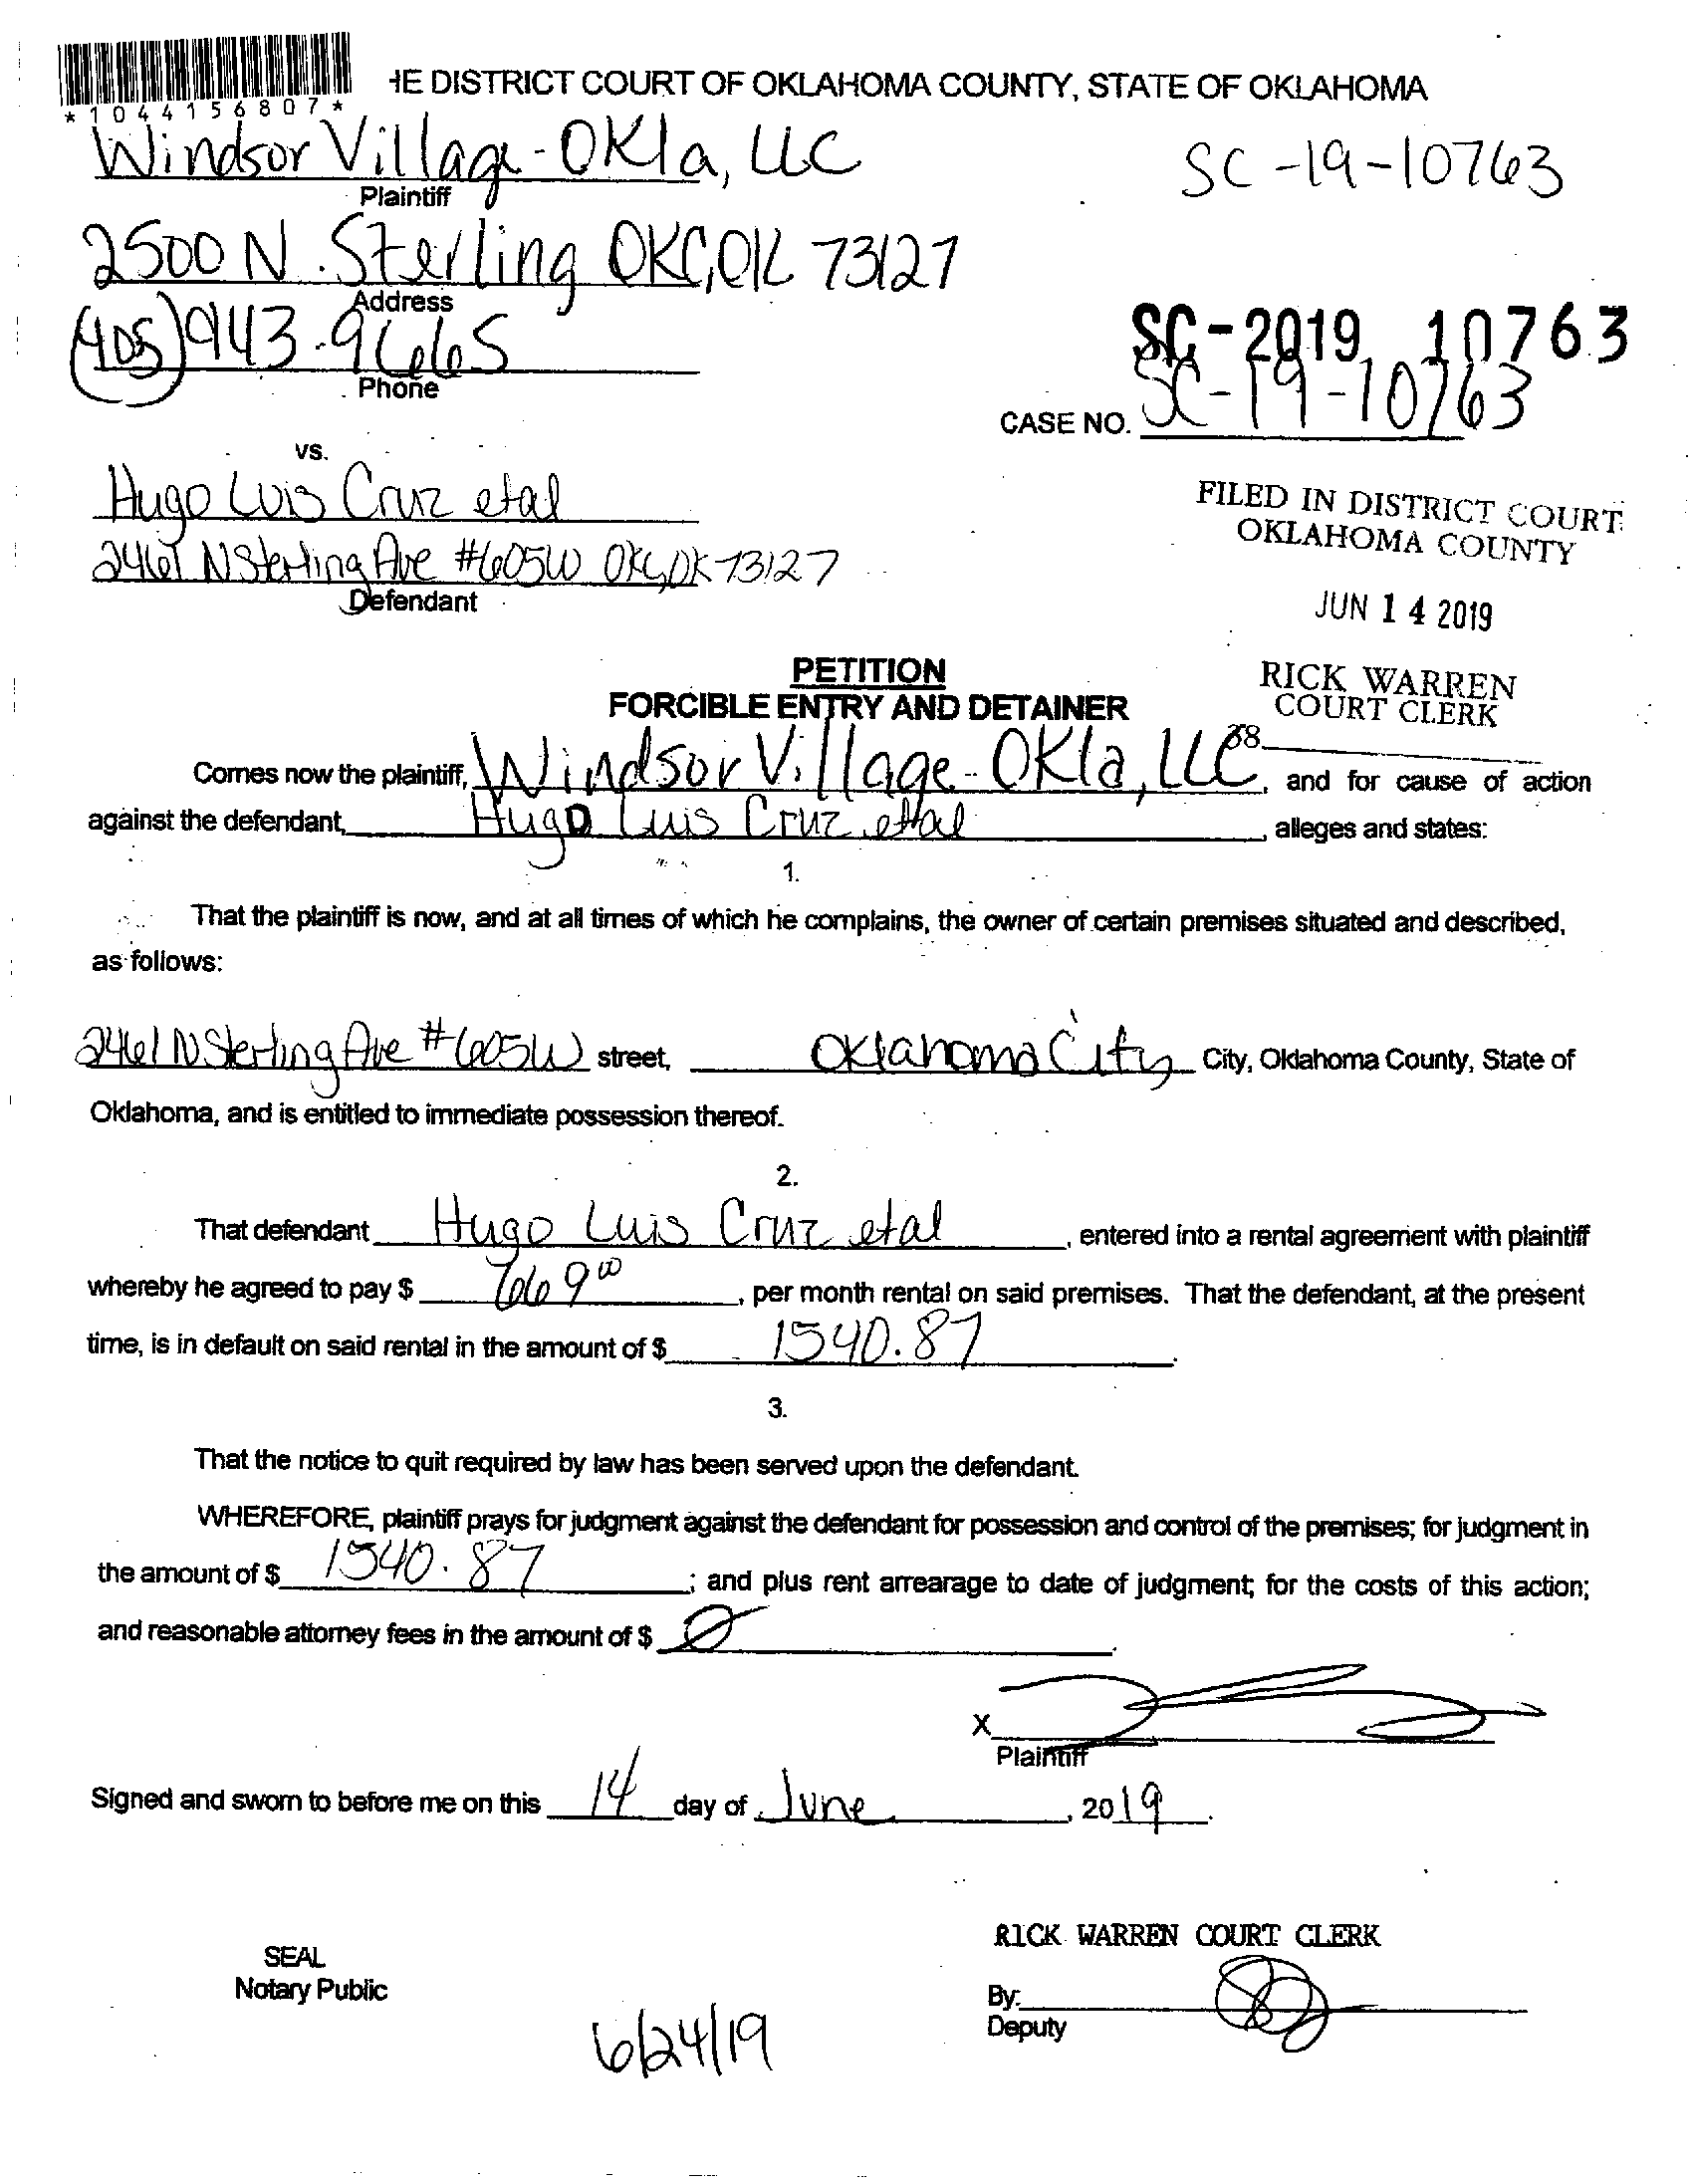 *1044156807*
HE DISTRICT COURT OF OKLAHOMA COUNTY, STATE OF OKLAHOMA
Windsor Village-Okla, LLC
Plaintiff
SC-19-10763
2500 N. Sterling OKC, OK 73127
Address
(405) 943-9665
Phone
SC-2019 10763
CASE NO. SC-19-10763
vs.
Hugo Luis Cruz etal
2461 N Sterling Ave #605W OKC, OK 73127
Defendant
FILED IN DISTRICT COURT
OKLAHOMA COUNTY
JUN 14 2019
RICK WARREN
COURT CLERK
38
PETITION
FORCIBLE ENTRY AND DETAINER
Comes now the plaintiff, Windsor Village-Okla, LLC, and for cause of action
against the defendant, Hugo Luis Cruz, etal, alleges and states:
1.
That the plaintiff is now, and at all times of which he complains, the owner of certain premises situated and described,
as follows:
2461 N Sterling Ave #605W street, Oklahoma City City, Oklahoma County, State of
Oklahoma, and is entitled to immediate possession thereof.
2.
That defendant Hugo Luis Cruz etal, entered into a rental agreement with plaintiff
whereby he agreed to pay $ 769 00, per month rental on said premises. That the defendant, at the present
time, is in default on said rental in the amount of $ 1540.87.
3.
That the notice to quit required by law has been served upon the defendant.
WHEREFORE, plaintiff prays for judgment against the defendant for possession and control of the premises; for judgment in
the amount of $ 1540.87; and plus rent arrearage to date of judgment; for the costs of this action;
and reasonable attorney fees in the amount of $ 0.
X
Plaintiff
Signed and sworn to before me on this 14 day of June, 2019.
RICK WARREN COURT CLERK
SEAL
Notary Public
By:
Deputy
6/24/19